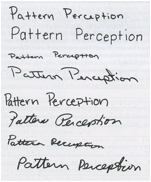 Pattern Perception
Pattern Perception
Pattern Perception
Pattern Perception
Pattern Perception
Pattern Perception
Pattern Perception
Pattern Perception